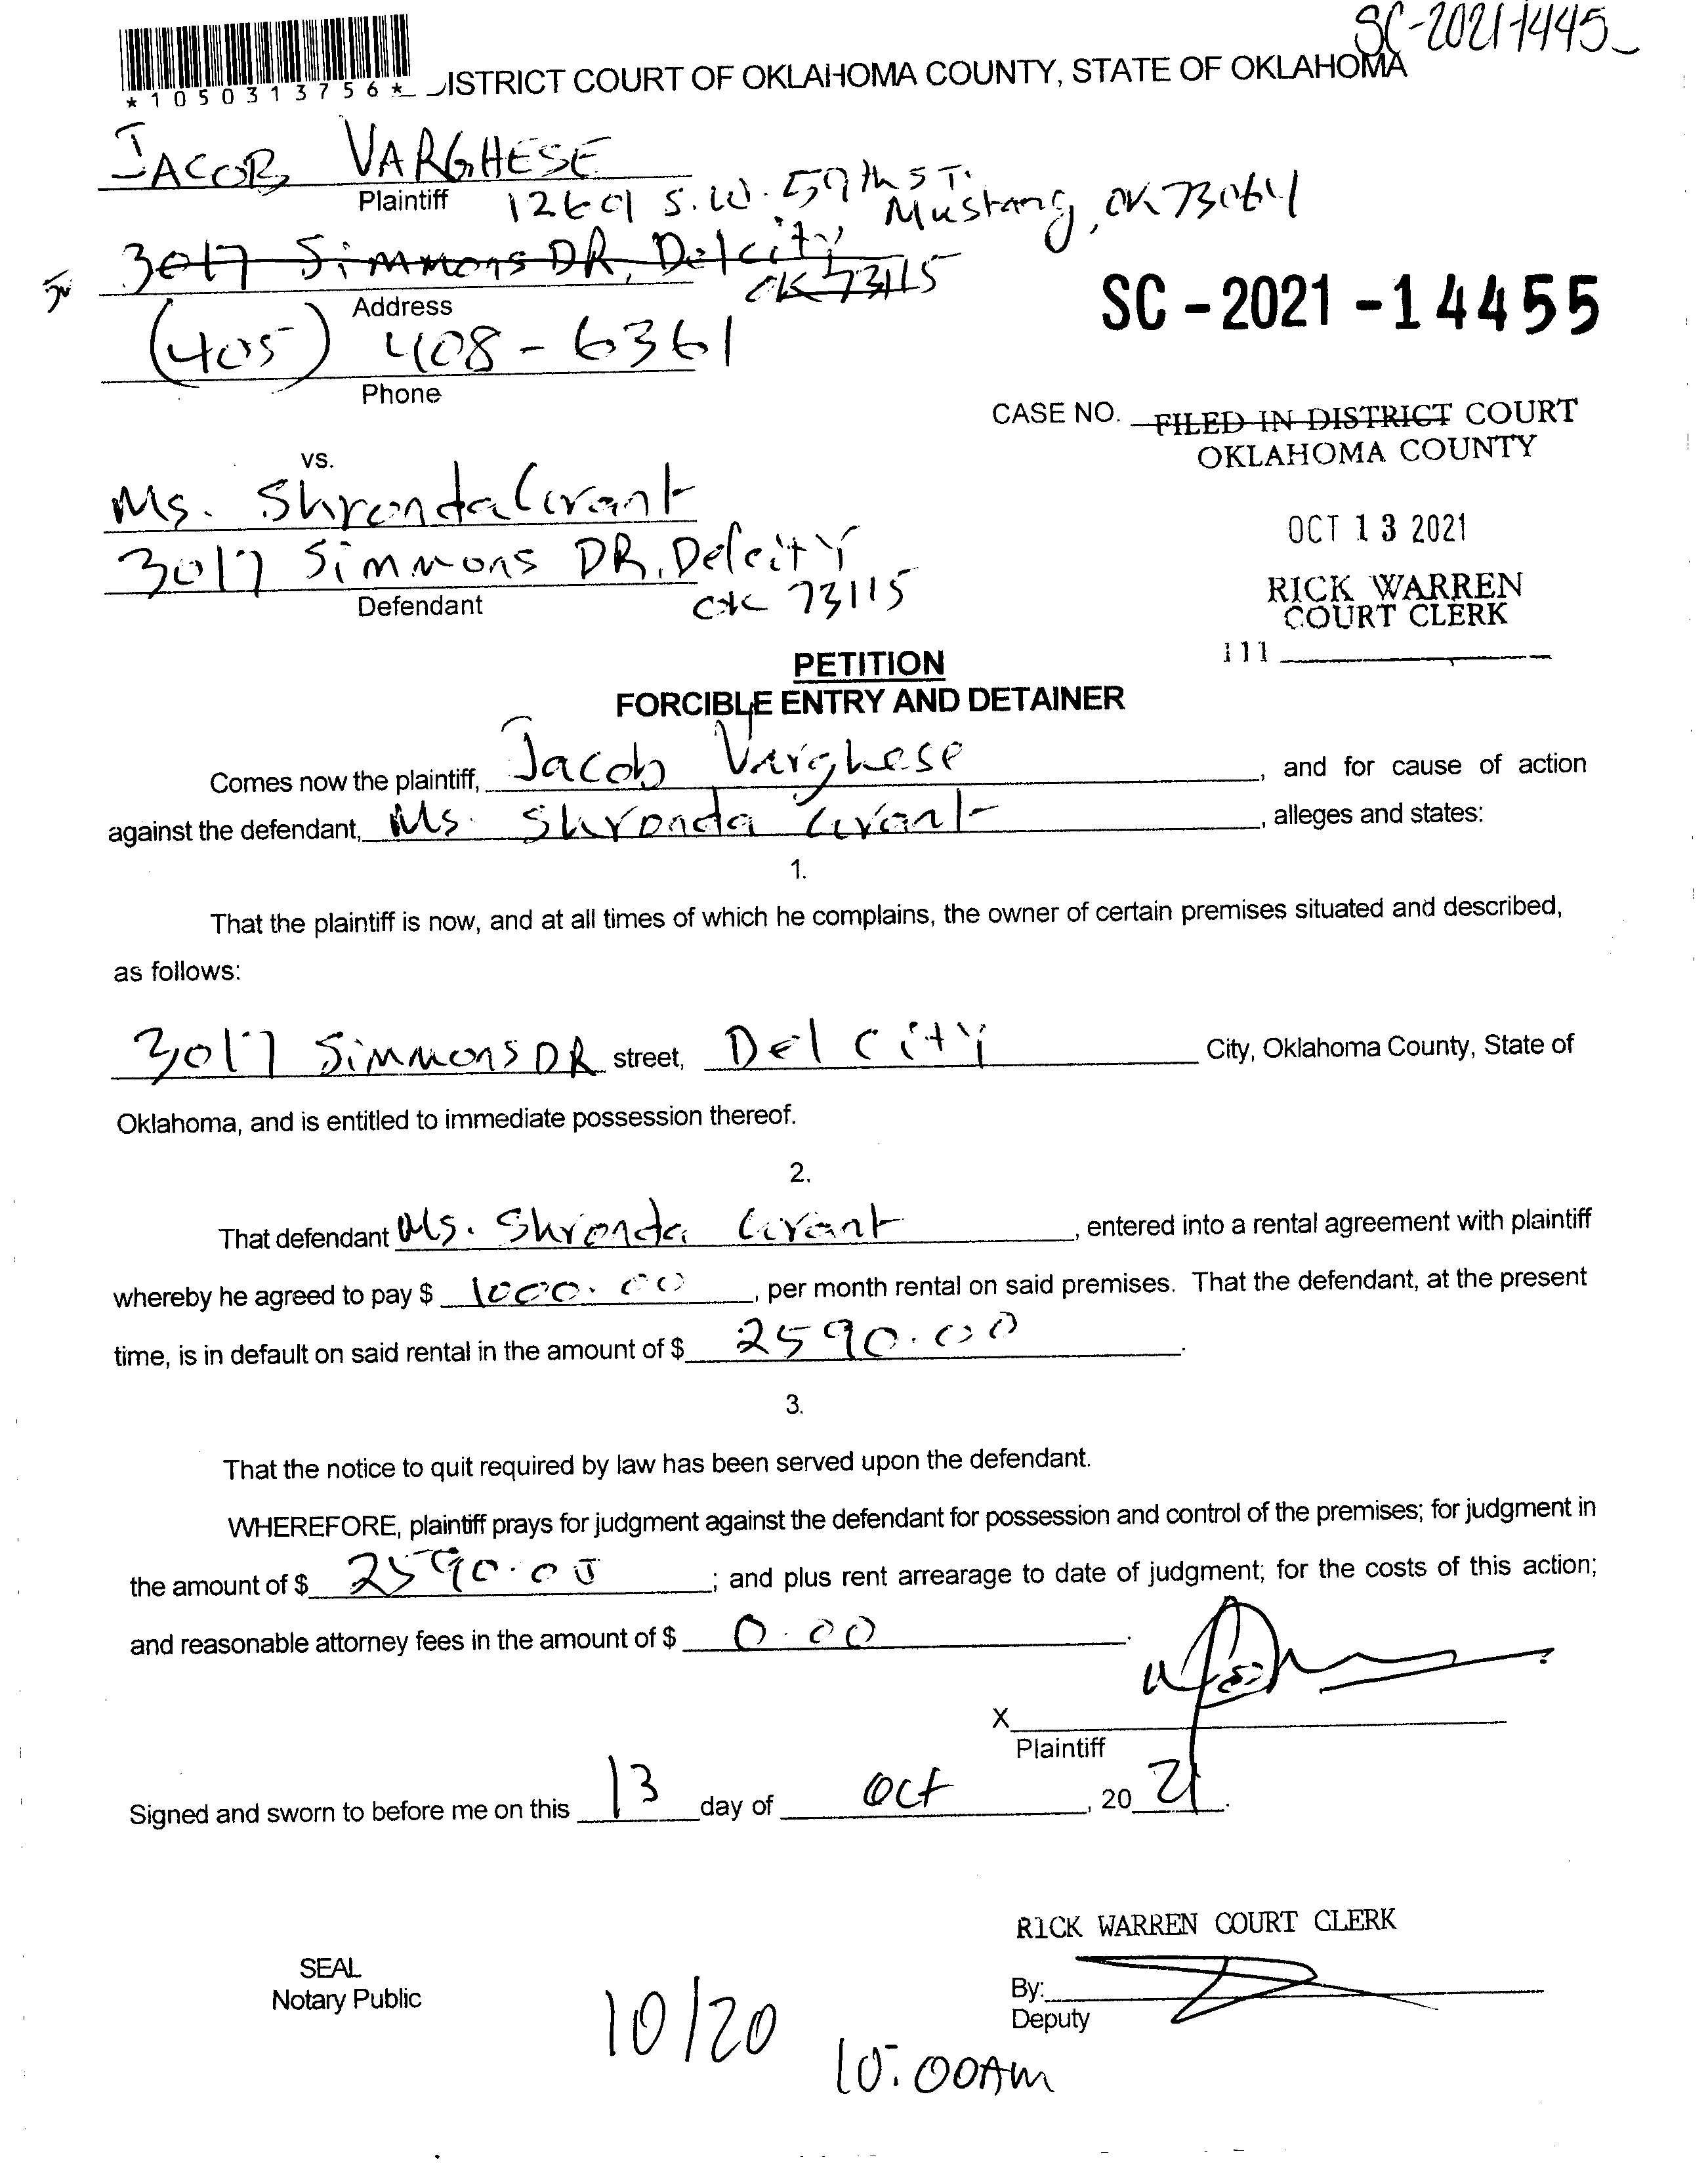 SC-2021-1445
*1050313756* DISTRICT COURT OF OKLAHOMA COUNTY, STATE OF OKLAHOMA
JACOB VARGHESE
Plaintiff
S.W. 59th ST.
Mustang, OK 73064
3017 Simmons DR, Delcity
OK 73115
Address
(405) 408-6361
Phone
SC-2021-14455
CASE NO.
FILED IN DISTRICT COURT
OKLAHOMA COUNTY
OCT 13 2021
RICK WARREN
COURT CLERK
111
vs.
Ms. Shronda Grant
3017 Simmons DR, Delcity
OK 73115
Defendant
PETITION
FORCIBLE ENTRY AND DETAINER
Comes now the plaintiff, Jacob Varghese, and for cause of action
against the defendant, Ms. Shronda Grant, alleges and states:
1.
That the plaintiff is now, and at all times of which he complains, the owner of certain premises situated and described,
as follows:
3017 Simmons DR street, Del city City, Oklahoma County, State of
Oklahoma, and is entitled to immediate possession thereof.
2.
That defendant Ms. Shronda Grant, entered into a rental agreement with plaintiff
whereby he agreed to pay $ 1000.00, per month rental on said premises. That the defendant, at the present
time, is in default on said rental in the amount of $ 2590.00.
3.
That the notice to quit required by law has been served upon the defendant.
WHEREFORE, plaintiff prays for judgment against the defendant for possession and control of the premises; for judgment in
the amount of $ 2590.00; and plus rent arrearage to date of judgment; for the costs of this action;
and reasonable attorney fees in the amount of $ 0.00.
X
Plaintiff
Signed and sworn to before me on this 13 day of Oct, 20 21.
RICK WARREN COURT CLERK
SEAL
Notary Public
By:
Deputy
10/20
10:00AM